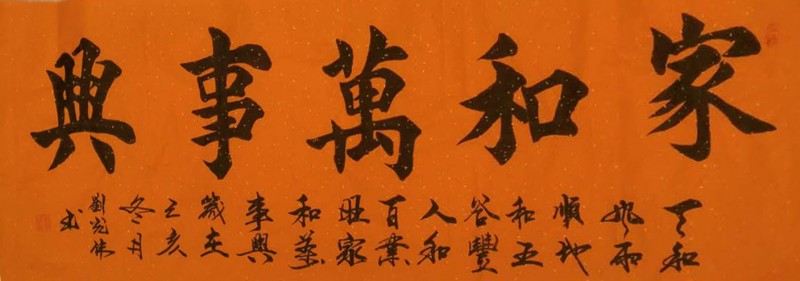 家和萬事興
天和
風雨
順地
和五
谷豐
人和
百業
旺家
和萬
事興
歲在
己亥
冬月
劉
书